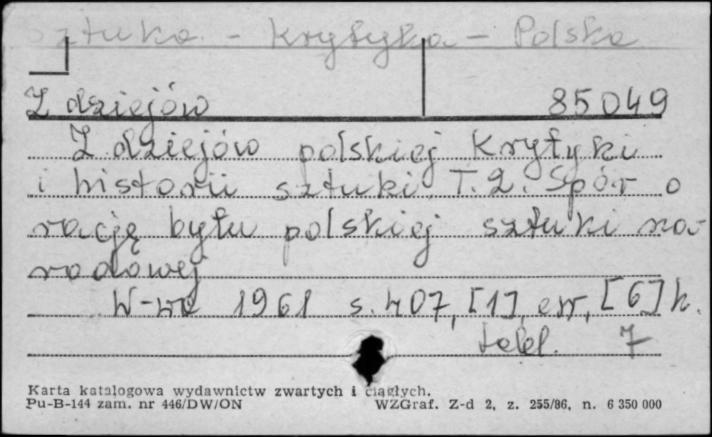 Sztuka - Krytyka - Polska
Z dziejów 85049
Z dziejów polskiej Krytyki
i historii sztuki. T. 2. Spór o
rację bytu polskiej sztuki na-
rodowej
W-wa 1961 s. 407, [1], err, [6] k.
tabl. 7
Karta katalogowa wydawnictw zwartych i ciągłych.
Pu-B-144 zam. nr 446/DW/ON WZGraf. Z-d 2, z. 255/86, n. 6 350 000